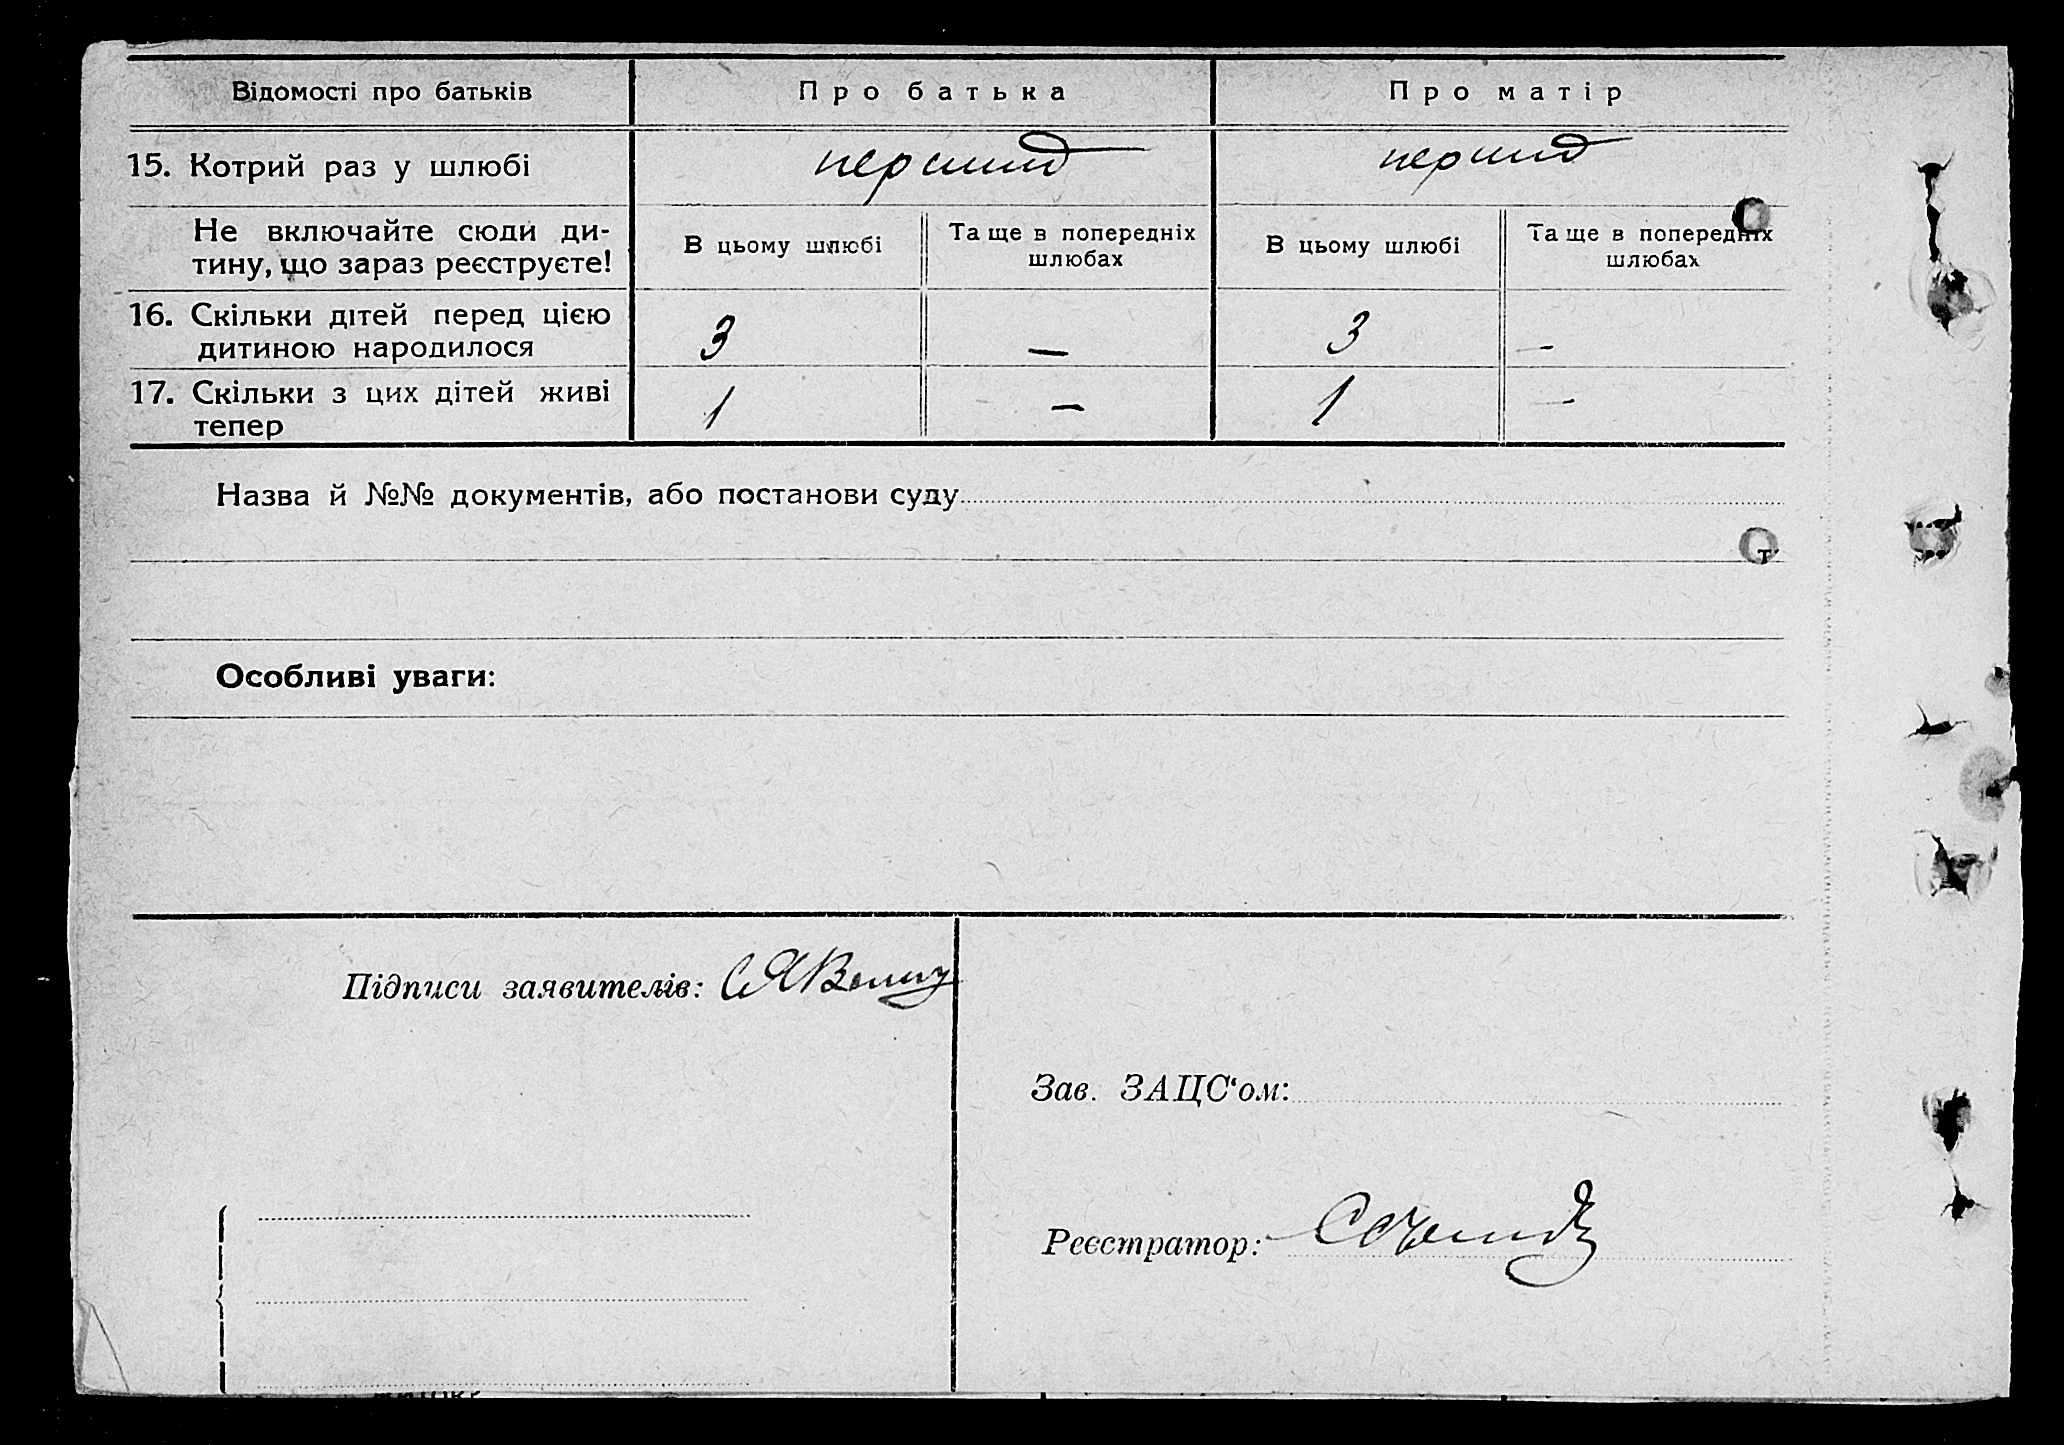 Відомості про батьків Про батька Про матір
15. Котрий раз у шлюбі перший перший
Не включайте сюди ди-
тину, що зараз реєструєте!
В цьому шлюбі Та ще в попередніх шлюбах В цьому шлюбі Та ще в попередніх шлюбах
16. Скільки дітей перед цією
дитиною народилося 3 — 3 —
17. Скільки з цих дітей живі
тепер 1 — 1 —
Назва й №№ документів, або постанови суду
Особливі уваги:
Підписи заявителів:
Зав. ЗАЦС'ом:
Реєстратор: